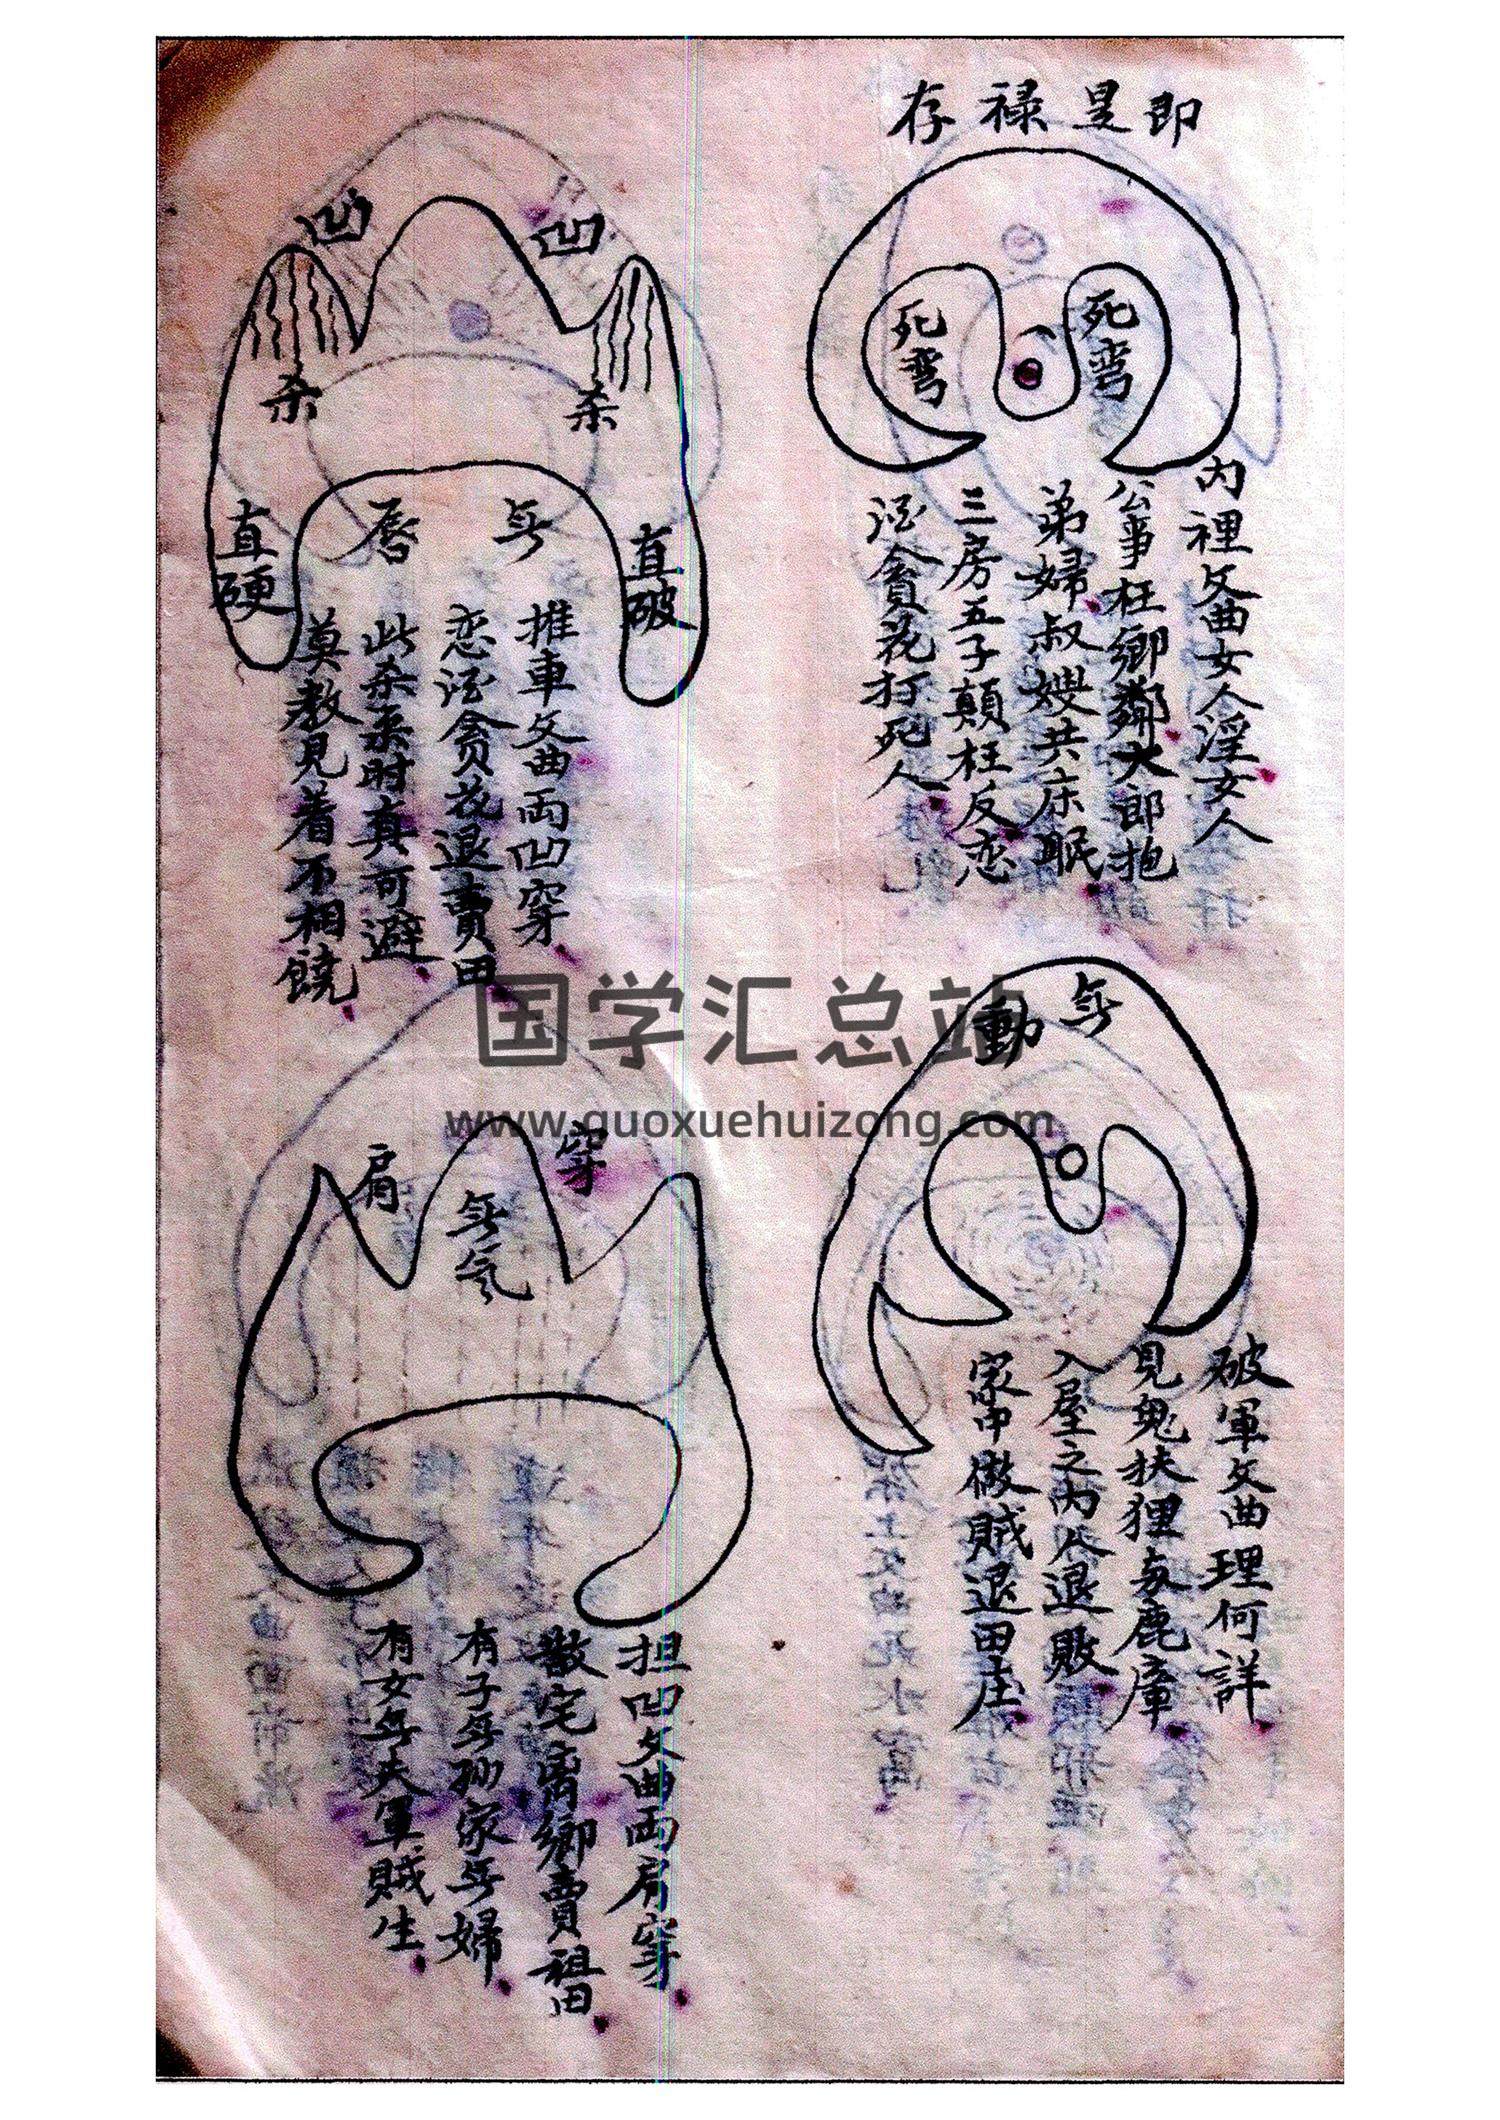 即是禄存
死弯
死弯
內裡文曲女人淫女人
公事枉鄉鄰大郎抱
弟婦叔嫂共床眠
三房五子顛枉反恋
酒貪花打死人
凹
凹
杀
杀
直破
旡唇
直硬
推車文曲両凹穿
恋酒貪花退賣田
此杀来时真可避
莫教見着不相饒
旡動
破軍文曲理何詳
見鬼扶狸与鹿麞
入屋之內人退敗
家中做賊退田庄
穿
肩
旡気
担凹文曲両肩穿
散宅离鄉賣祖田
有子旡孙家旡婦
有女旡夫軍賊生
国学汇总站
www.guoxuehuizong.com